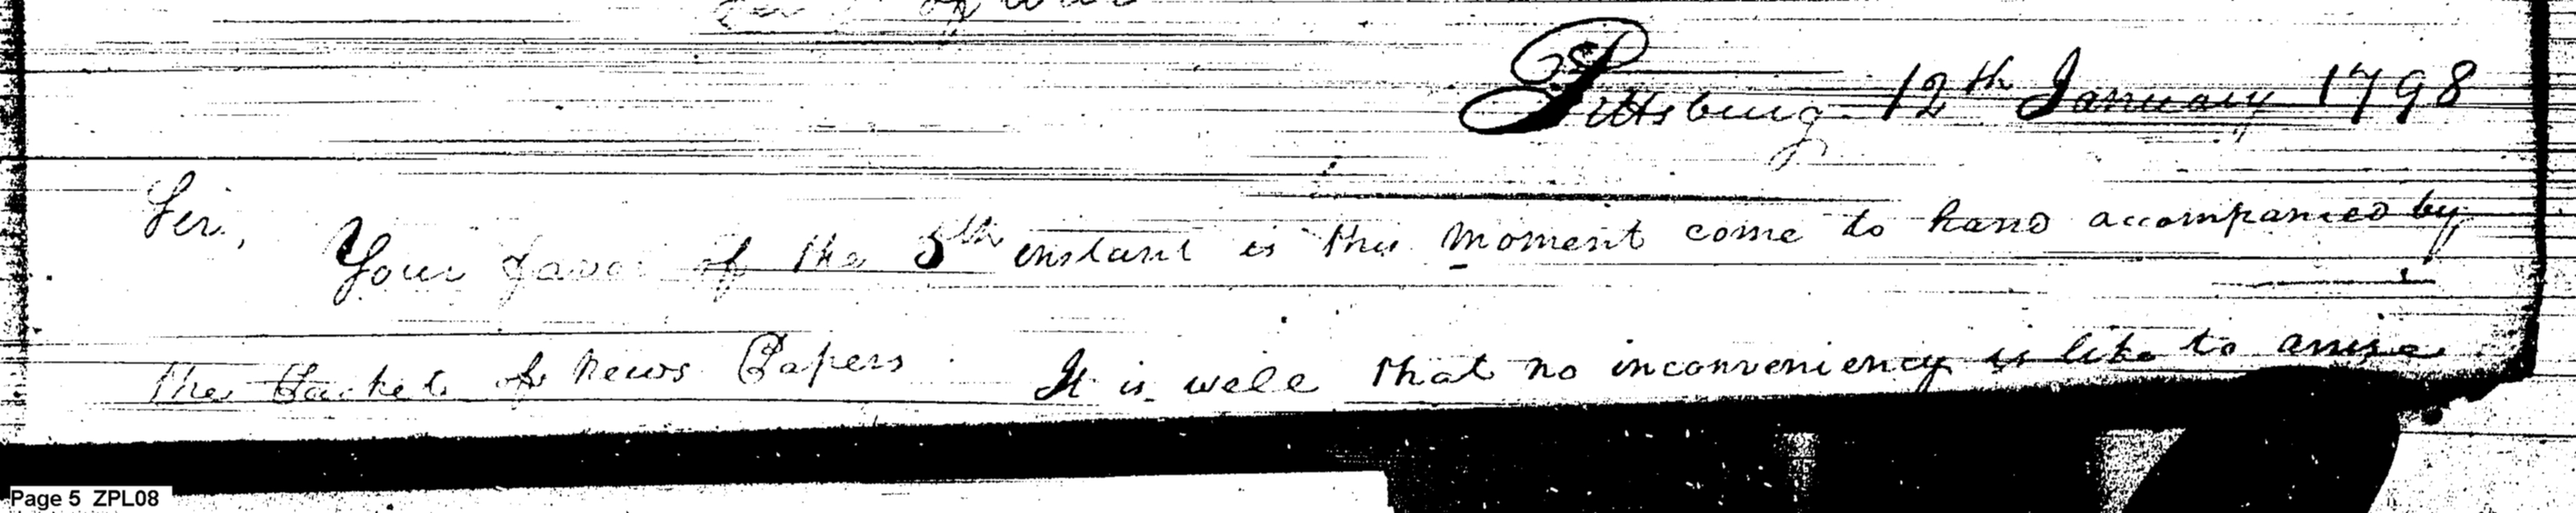 of war
Pittsburg 12th January 1798
Sir,
Your favor of the 5th instant is this Moment come to hand accompanied by
the Packet of News Papers. It is well that no inconveniency is like to arise
Page 5 ZPL08